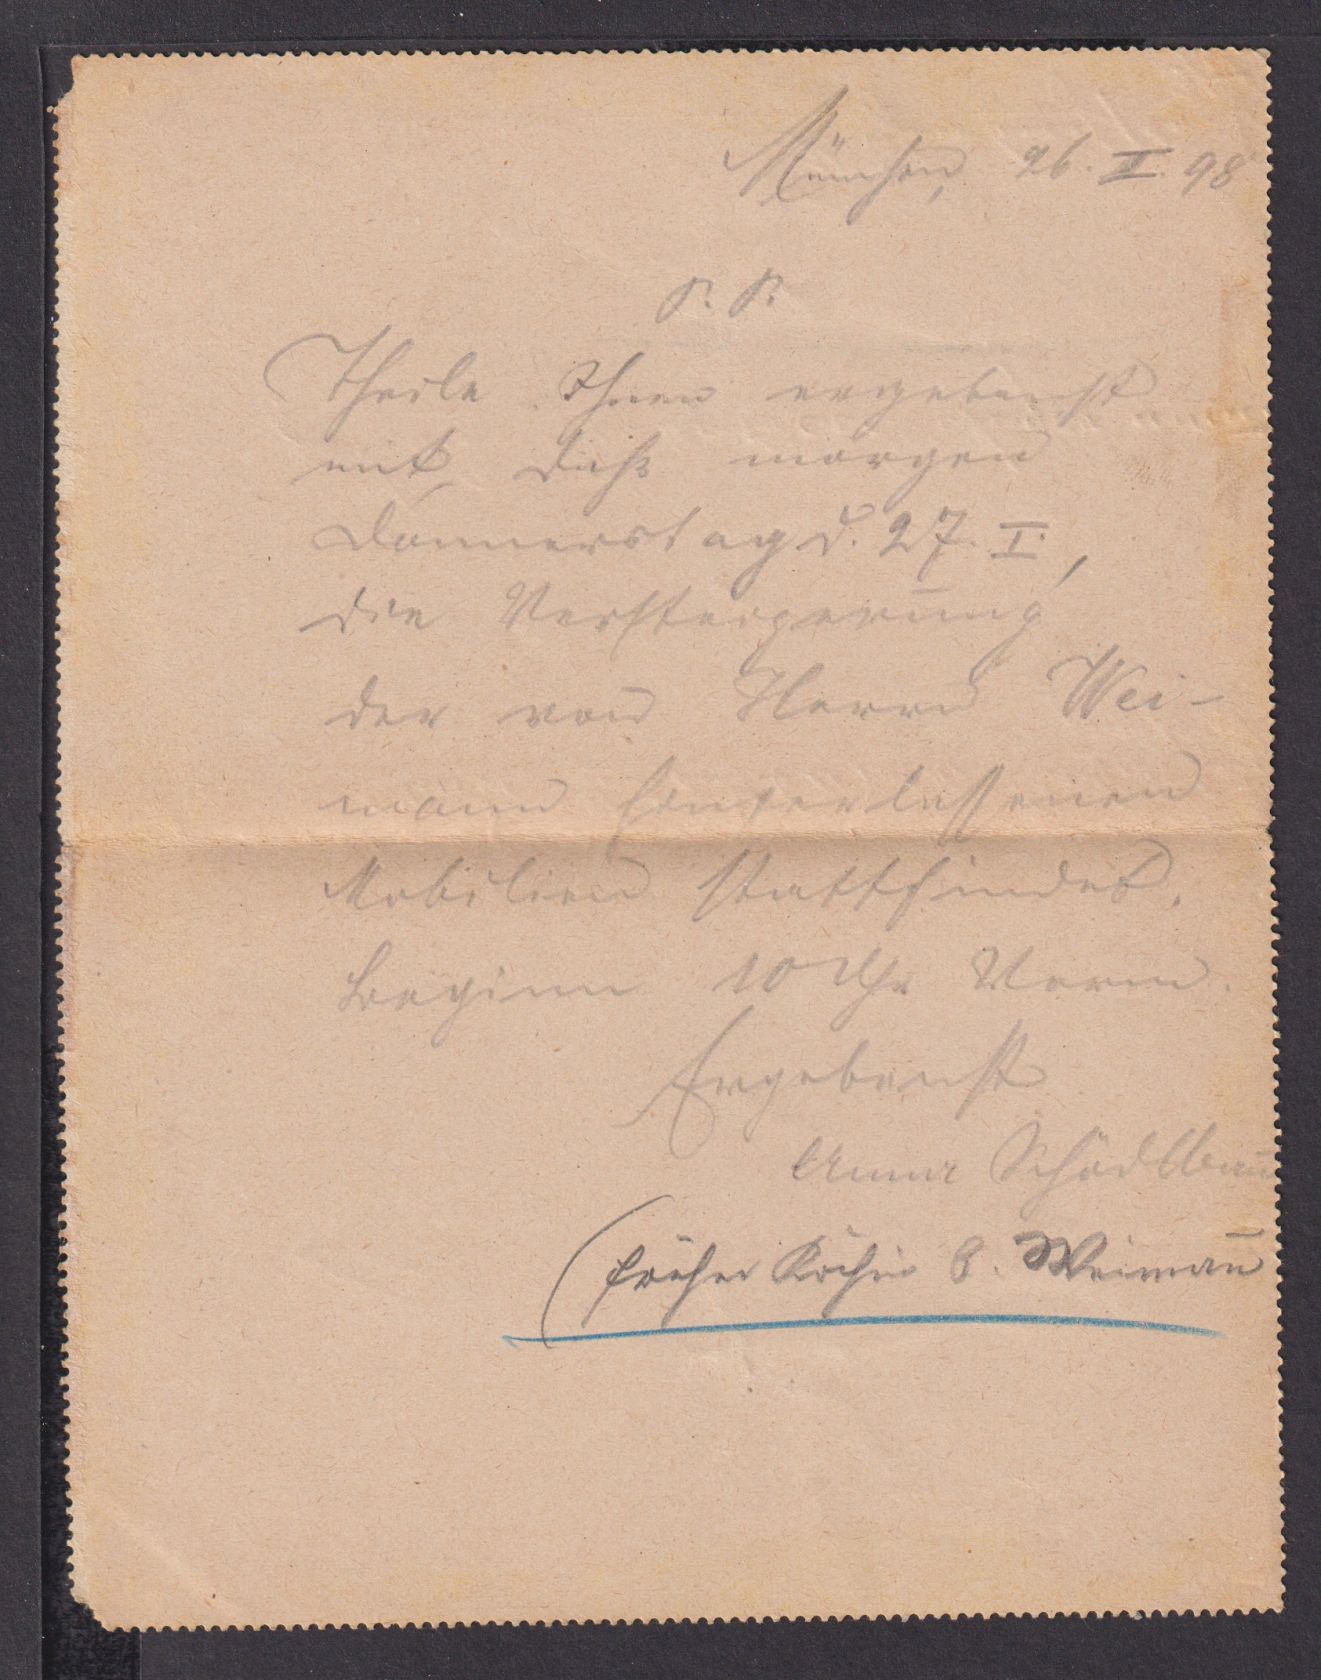 München, 26. II. 98
P. P.
Theile Ihnen ergebenst
mit, daß morgen
Donnerstag d. 27. I.,
die Versteigerung
der von Herrn Wei-
mann hinterlassenen
Mobilien stattfindet.
Beginn 10 Uhr Vorm.
Ergebenst
Anna
(früher Köchin b. Weiman̄